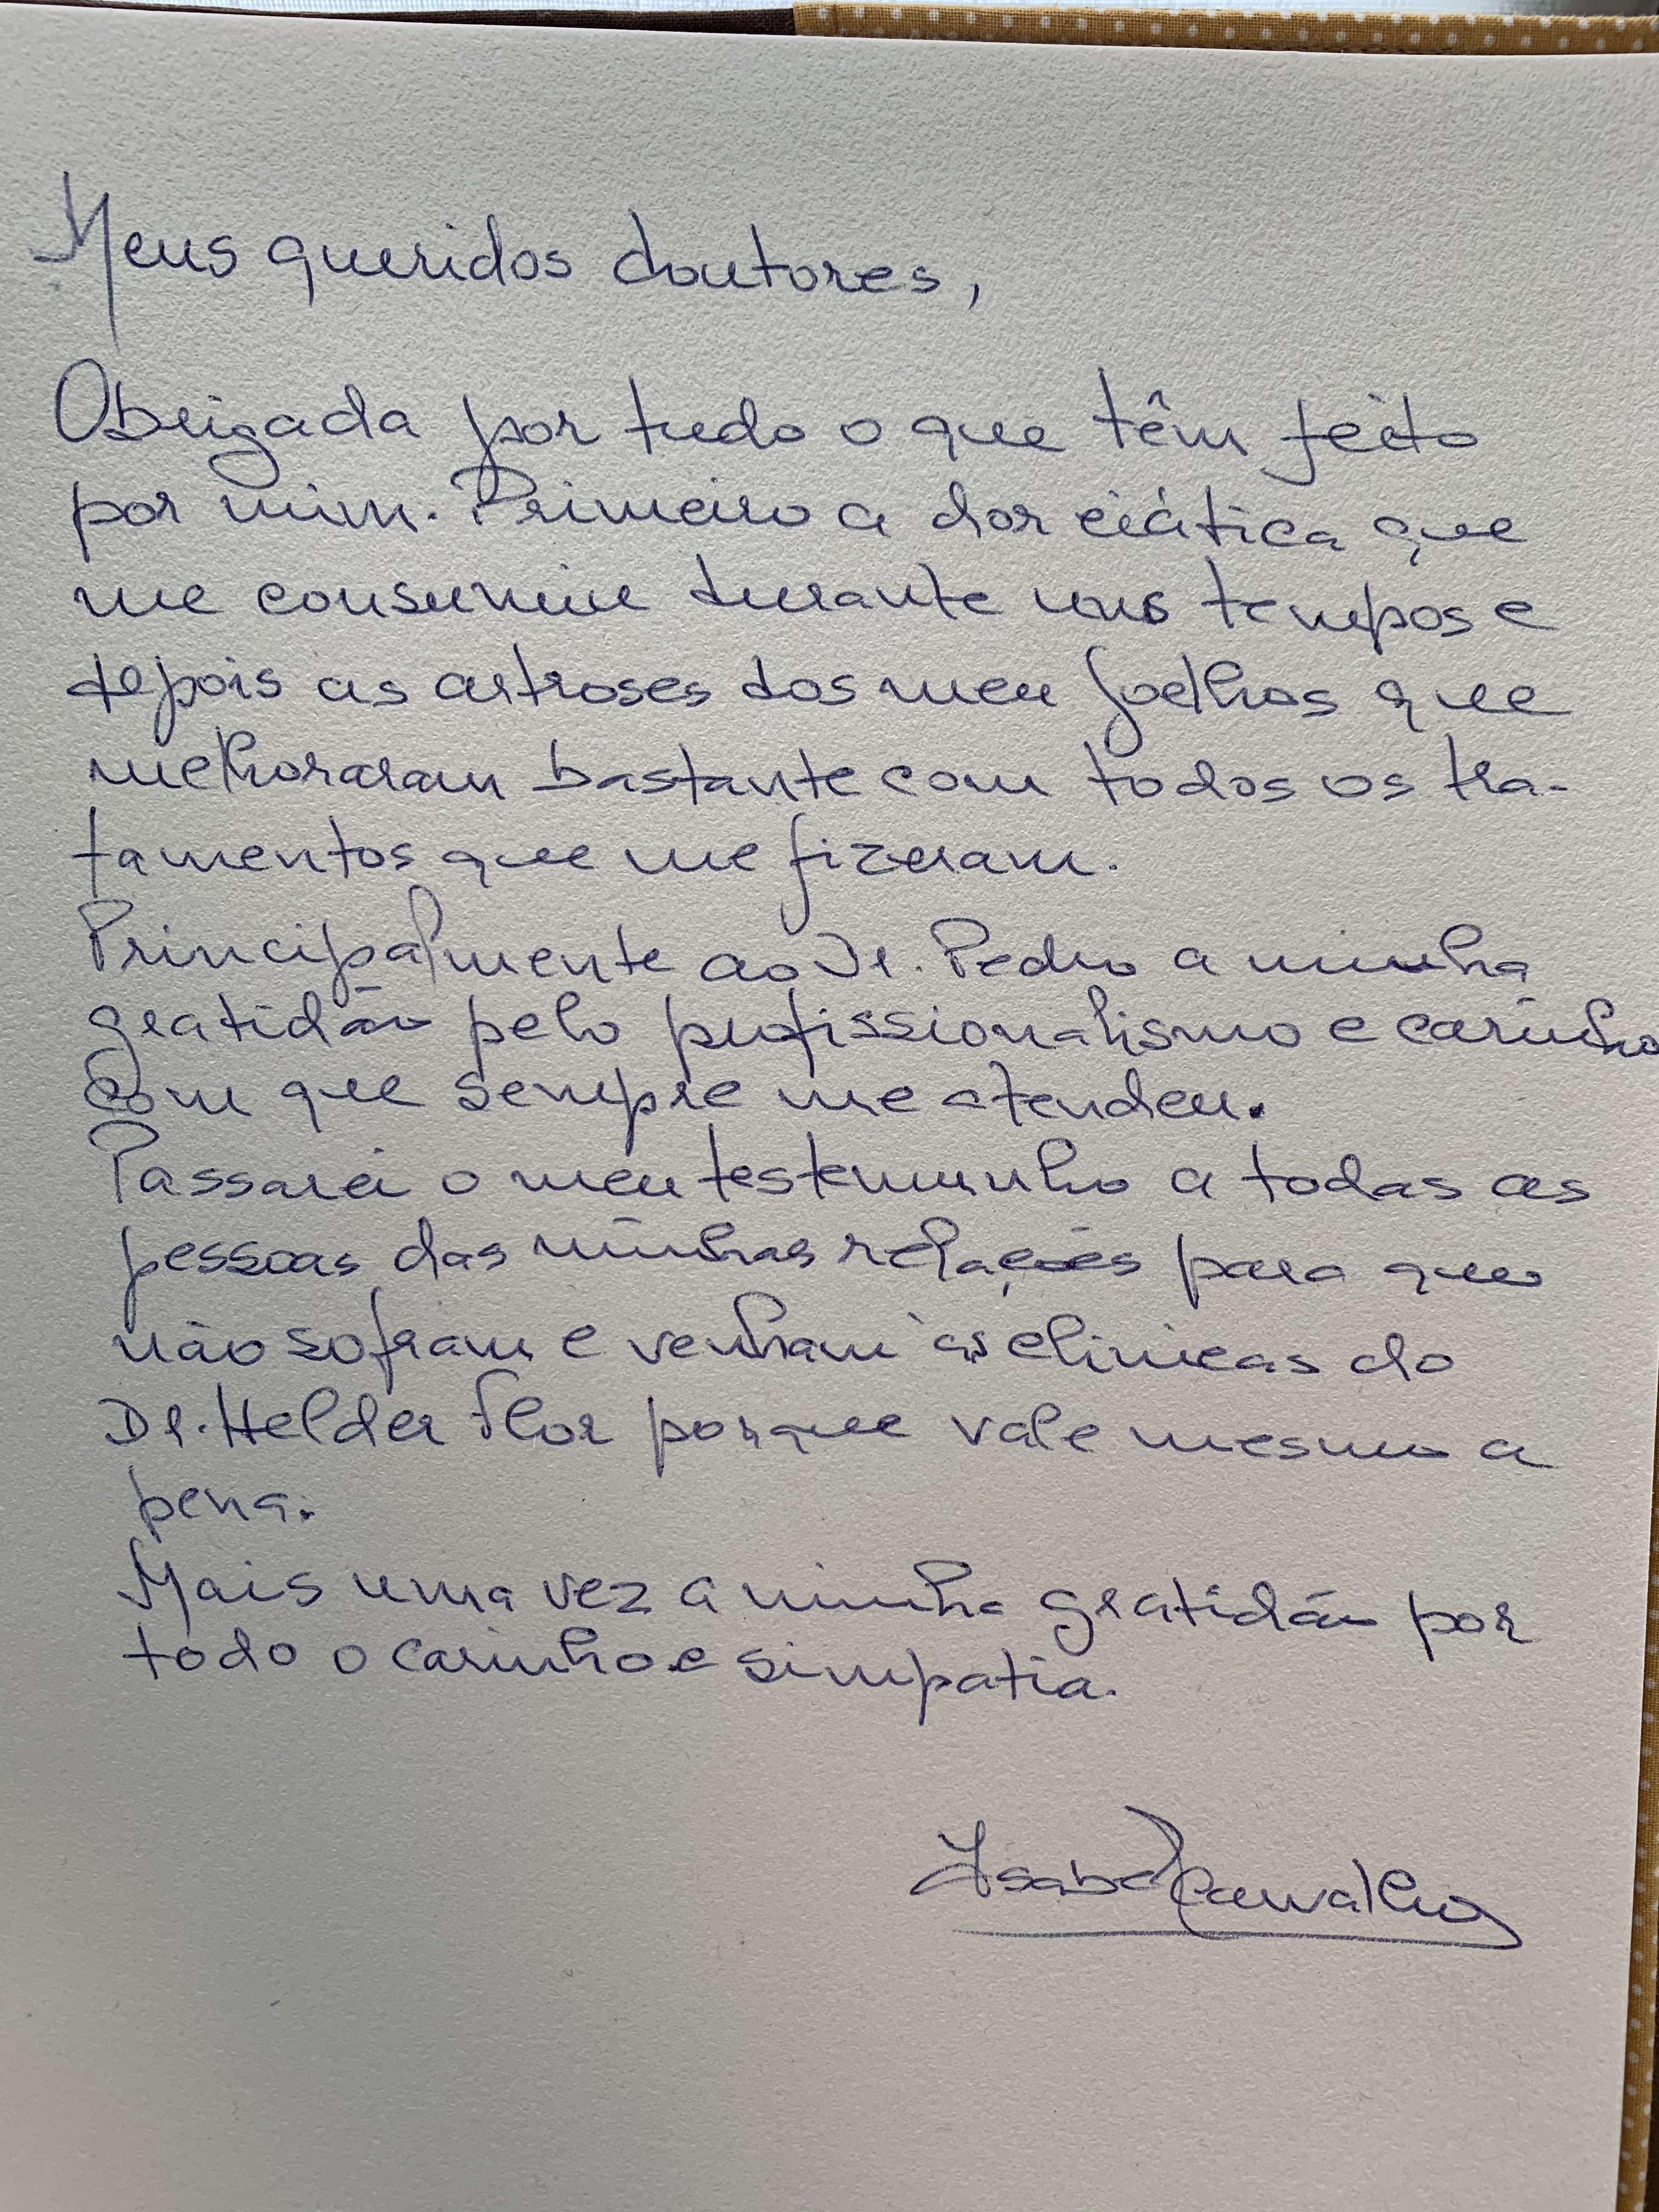 Meus queridos doutores,
Obrigada por tudo o que têm feito
por mim. Primeiro a dor ciática que
me consumiu durante uns tempos e
depois as artroses dos meu joelhos que
melhoraram bastante com todos os tra-
tamentos que me fizeram.
Principalmente ao Dr. Pedro a minha
gratidão pelo profissionalismo e carinho
com que sempre me atendeu.
Passarei o meu testemunho a todas as
pessoas das minhas relações para que
não sofram e venham às clinicas do
Dr. Helder Flor porque vale mesmo a
pena.
Mais uma vez a minha gratidão por
todo o carinho e simpatia.
Isabel Carvalho